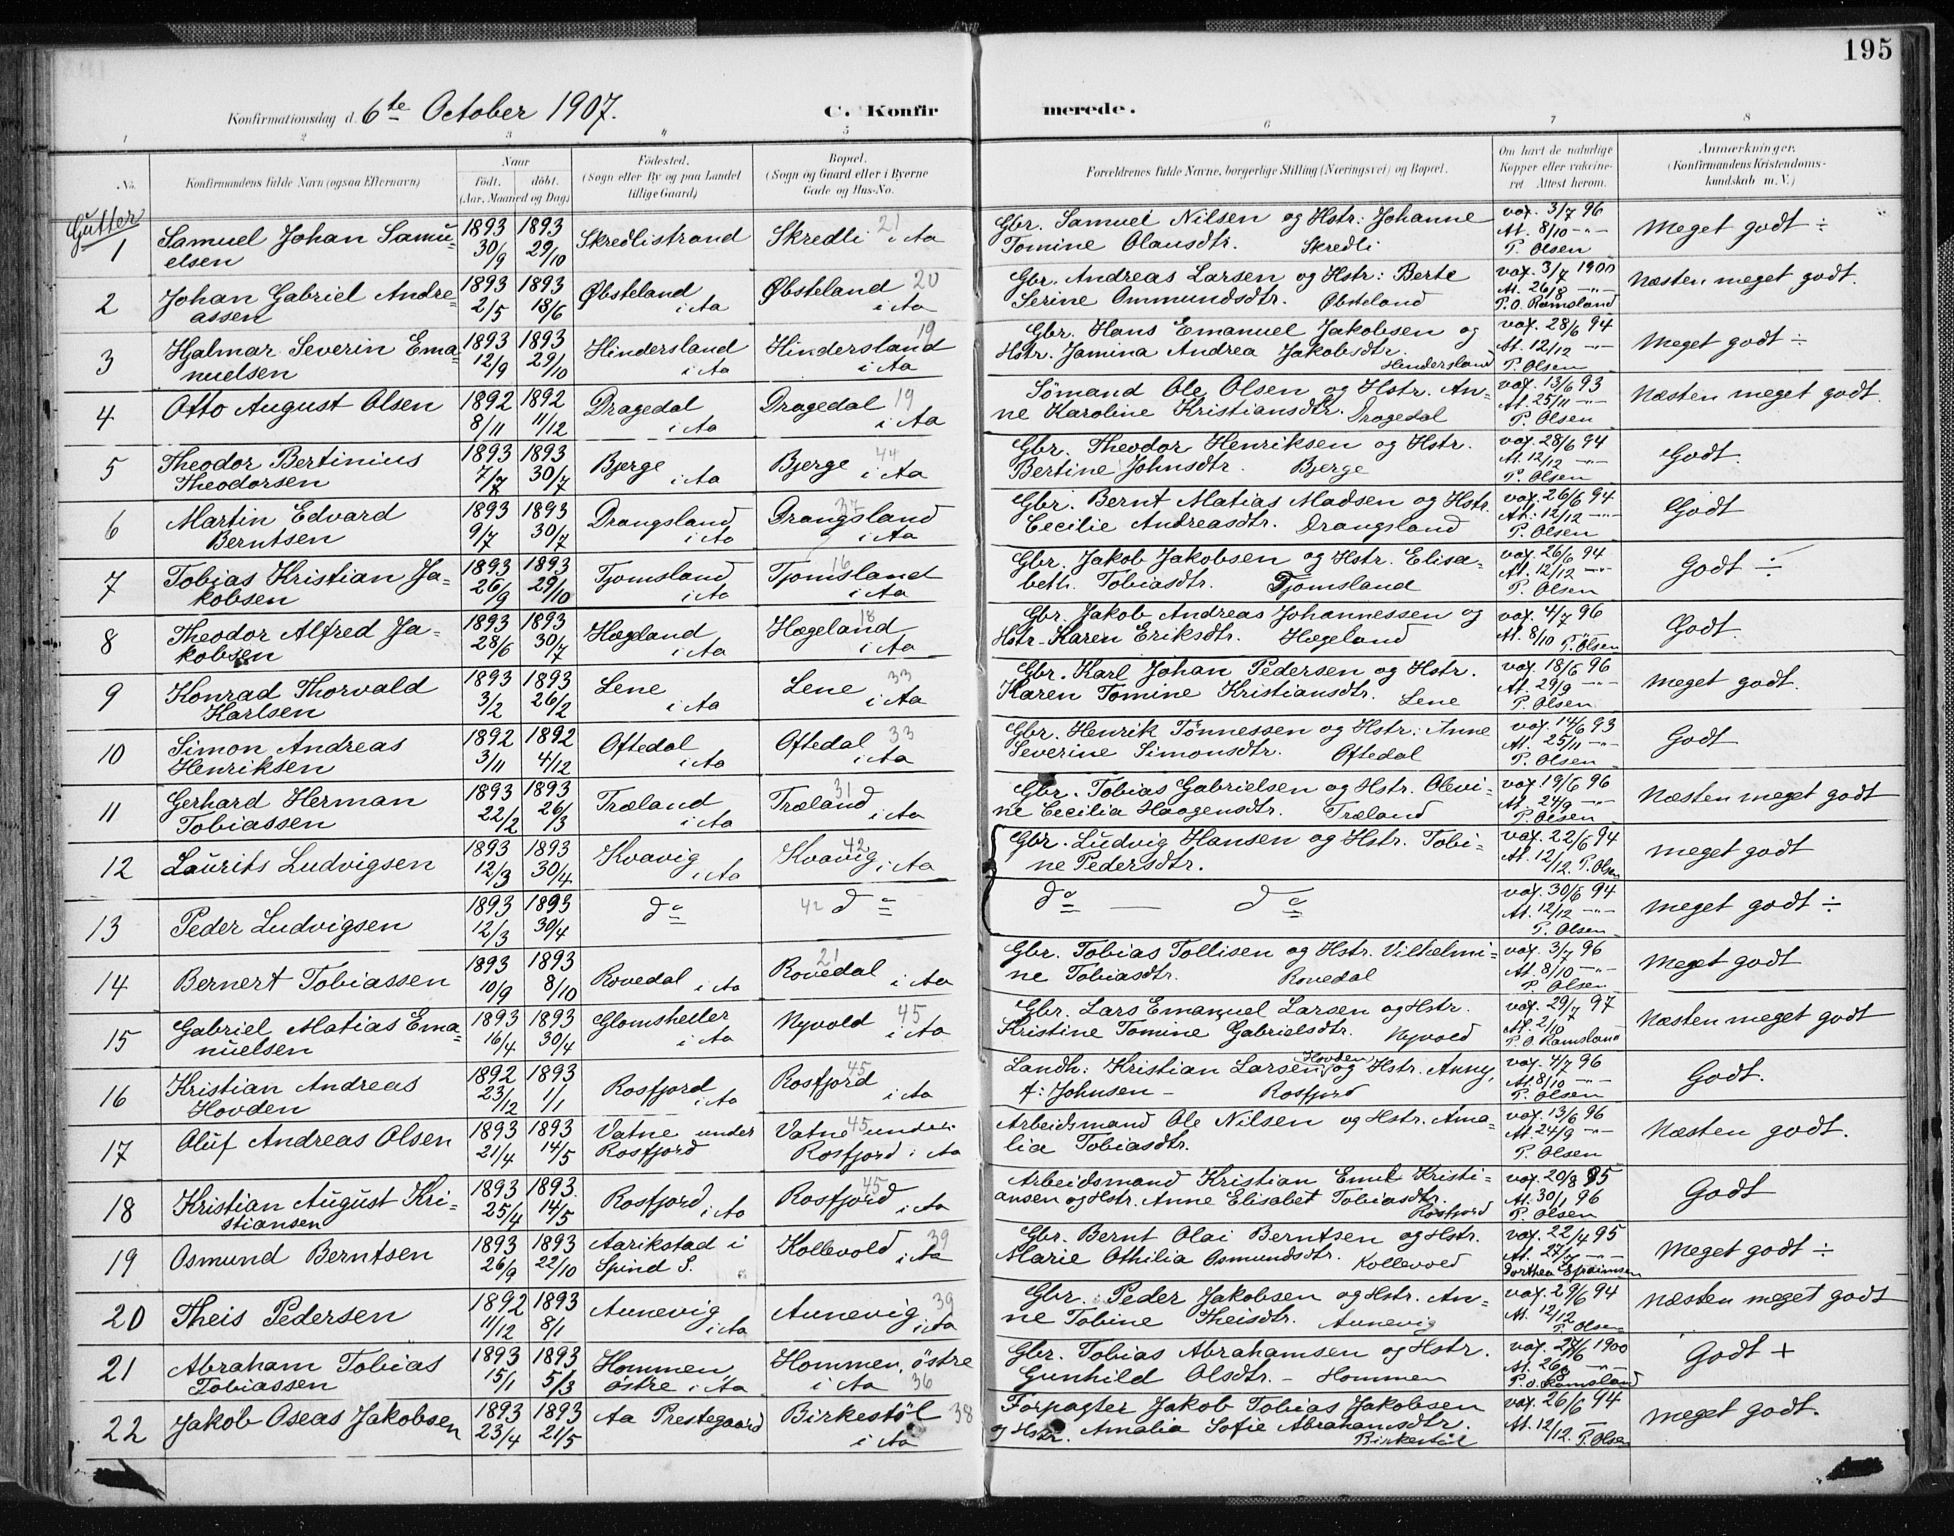 195
Konfirmationsdag d. 6te October 1907.
C. Konfirmerede.
1 2 3 4 5 6 7 8
No.
Konfirmandens fulde Navn (ogsaa Efternavn)
Naar
født. døbt.
(Aar, Maaned og Dag)
Fødested.
(Sogn eller By og paa Landet
tillige Gaard)
Bopæl.
(Sogn og Gaard eller i Byerne
Gade og Hus-No.
Forældrenes fulde Navne, borgerlige Stilling (Næringsvei) og Bopæl.
Om havt de naturlige
Kopper eller vakcine-
ret Attest herom.
Anmerkninger.
(Konfirmandens Kristendoms-
kundskab m. V.)
Gutter
1 Samuel Johan Samu- 1893 1893 Skredlistrand Skredli 21 i Aa Gbr. Samuel Nilsen og Hstr: Johanne vax. 3/7 96 Meget godt ÷
elsen 30/9 29/10 Tomine Olausdtr. Skredli At. 8/10 -"-
P. Olsen
2 Johan Gabriel Andre- 1893 1893 Øbsteland Øbsteland 20 Gbr. Andreas Larsen og Hstr: Berte vax. 3/7 1900 Næsten meget godt.
assen 2/5 18/6 i Aa i Aa Serine Ommundsdtr. Øbsteland At. 26/8 -"-
P.O. Ramsland
3 Hjalmar Severin Ema- 1893 1893 Hindersland Hindersland 19 Gbr. Hans Emanuel Jakobsen og vax. 28/6 94 Meget godt ÷
nuelsen 12/9 29/10 i Aa i Aa Hstr. Jamina Andrea Jakobsdtr. Hendersland At. 12/12 -"-
P. Olsen
4 Otto August Olsen 1892 1892 Dragedal Dragedal 19 Sømand Ole Olsen og Hstr. An- vax. 13/6 93 Næsten meget godt.
8/11 11/12 i Aa i Aa ne Karoline Kristiansdtr. Dragedal At. 25/11 -"-
P. Olsen
5 Theodor Bertinius 1893 1893 Bjerge Bjerge 44 i Aa Gbr. Theodor Henriksen og Hstr. vax. 28/6 94 Godt.
Theodorsen 7/7 30/7 i Aa Bertine Johnsdtr. Bjerge At. 12/12 -"-
P. Olsen
6 Martin Edvard 1893 1893 Drangsland Drangsland 37 Gbr. Bernt Matias Madsen og Hstr. vax. 26/6 94 Godt
Berntsen 9/7 30/7 i Aa i Aa Cecilie Andreasdtr. Drangsland At. 12/12 -"-
P. Olsen
7 Tobias Kristian Ja- 1893 1893 Tjomsland Tjomsland 16 Gbr. Jakob Jakobsen og Hstr. Elisa- vax. 26/6 94 Godt ÷
kobsen 26/9 29/10 i Aa i Aa beth Tobiasdtr. Tjomsland At. 12/12 -"-
P. Olsen
8 Theodor Alfred Ja- 1893 1893 Hægland Hægeland 18 Gbr. Jakob Andreas Johannessen og vax. 4/7 96 Godt.
kobsen 28/6 30/7 i Aa i Aa Hstr. Karen Eriksdtr. Hægeland At. 8/10 P. Olsen
9 Konrad Thorvald 1893 1893 Lene Lene 33 Gbr. Karl Johan Pedersen og Hstr. vax. 18/6 96 Meget godt.
Karlsen 3/2 26/2 i Aa i Aa Karen Tomine Kristiansdtr. Lene At. 29/9 -"-
P. Olsen
10 Simon Andreas 1892 1892 Oftedal Oftedal 33 Gbr. Henrik Tønnessen og Hstr: Anne vax. 14/6 93 Godt
Henriksen 3/11 4/12 i Aa i Aa Severine Simonsdtr. Oftedal At. 25/11 -"-
P. Olsen
11 Gerhard Herman 1893 1893 Træland Træland 31 Gbr. Tobias Gabrielsen og Hstr. Olevi- vax. 19/6 96 Næsten meget godt
Tobiassen 22/2 26/3 i Aa i Aa ne Cecilia Haagensdtr. Træland At. 24/9 -"-
P. Olsen
12 Laurits Ludvigsen 1893 1893 Kvavig Kvavig 42 i Aa Gbr. Ludvig Hansen og Hstr. Tobi- vax. 22/6 94 meget godt
12/3 30/4 i Aa ne Pedersdtr. At. 12/12. P. Olsen
13 Peder Ludvigsen 1893 1893 do 42 do do — do vax. 30/6 94 meget godt ÷
12/3 30/4 At. 12/12 -"-
P. Olsen
14 Bernert Tobiassen 1893 1893 Rovedal i Aa Rovedal 21 i Aa Gbr. Tobias Tollisen og Hstr. Vilhelmi- vax. 3/7 96 Meget godt
10/9 8/10 ne Tobiasdtr. Rovedal At. 8/10 -"-
P. Olsen
15 Gabriel Matias Ema- 1893 1893 Glomsheller Nyvold 45 Gbr. Lars Emanuel Larsen og Hstr. vax. 29/7 97 Næsten meget godt
nuelsen 16/4 30/4 i Aa i Aa Kristine Tomine Gabrielsdtr. Nyvold At. 2/10
P.O. Ramsland
16 Kristian Andreas 1892 1893 Rosfjord Rosfjord 45 Landh: Kristian Larsen Hovden og Hstr. Anny, vax. 4/7 96 Godt.
Hovden 23/12 1/1 i Aa i Aa f: Johnsen - Rosfjord At. 8/10 -"-
P. Olsen
17 Oluf Andreas Olsen 1893 1893 Vatne under Vatne 45 under Arbeidsmand Ole Nilsen og Hstr. Ama- vax. 13/6 96 Næsten godt.
21/4 14/5 Rosfjord Rosfjord i Aa lia Tobiasdtr. At. 24/9 -"-
P. Olsen
18 Kristian August Kri- 1893 1893. Rosfjord i Aa Rosfjord 45 i Aa Arbeidsmand Kristian Emil Kristi- vax. 20/8 95 Godt
stiansen 25/4 14/5 ansen og Hstr. Anne Elisabet Tobiasdtr. Rosfjord At. 30/1 96
P. Olsen
19 Osmund Berntsen 1893 1893 Aarikstad i Kollevold 39 i Aa Gbr. Bernt Olai Berntsen og Hstr. vax. 22/4 95 Meget godt ÷
26/9 22/10 Spind S. Marie Othilia Osmundsdtr. Kollevold At. 27/7 -"-
Dorthea Efraimsen
20 Theis Pedersen 1892 1893 Aunevig Aunevig 39 Gbr. Peder Jakobsen og Hstr. An- vax. 29/6 94 Næsten meget godt
11/12 8/1 i Aa i Aa ne Tobine Theisdtr. Aunevig At. 12/12
P. Olsen
21 Abraham Tobias 1893 1893 Hommen, Hommen, østre Gbr. Tobias Abrahamsen og Hstr. vax. 27/6 1900 Godt +
Tobiassen 15/1 5/3 østre i Aa i Aa 36 Gunhild Olsdtr. - Hommen At. 26/8 -"-
P.O. Ramsland
22 Jakob Oseas Jakobsen 1893 1893 Aa Prestegaard Birkestøl 38 Forpagter Jakob Tobias Jakobsen vax. 26/6 94 meget godt.
23/4 21/5 i Aa og Hstr. Amalia Sofie Abrahamsdtr. Birkestøl At. 12/12. P. Olsen